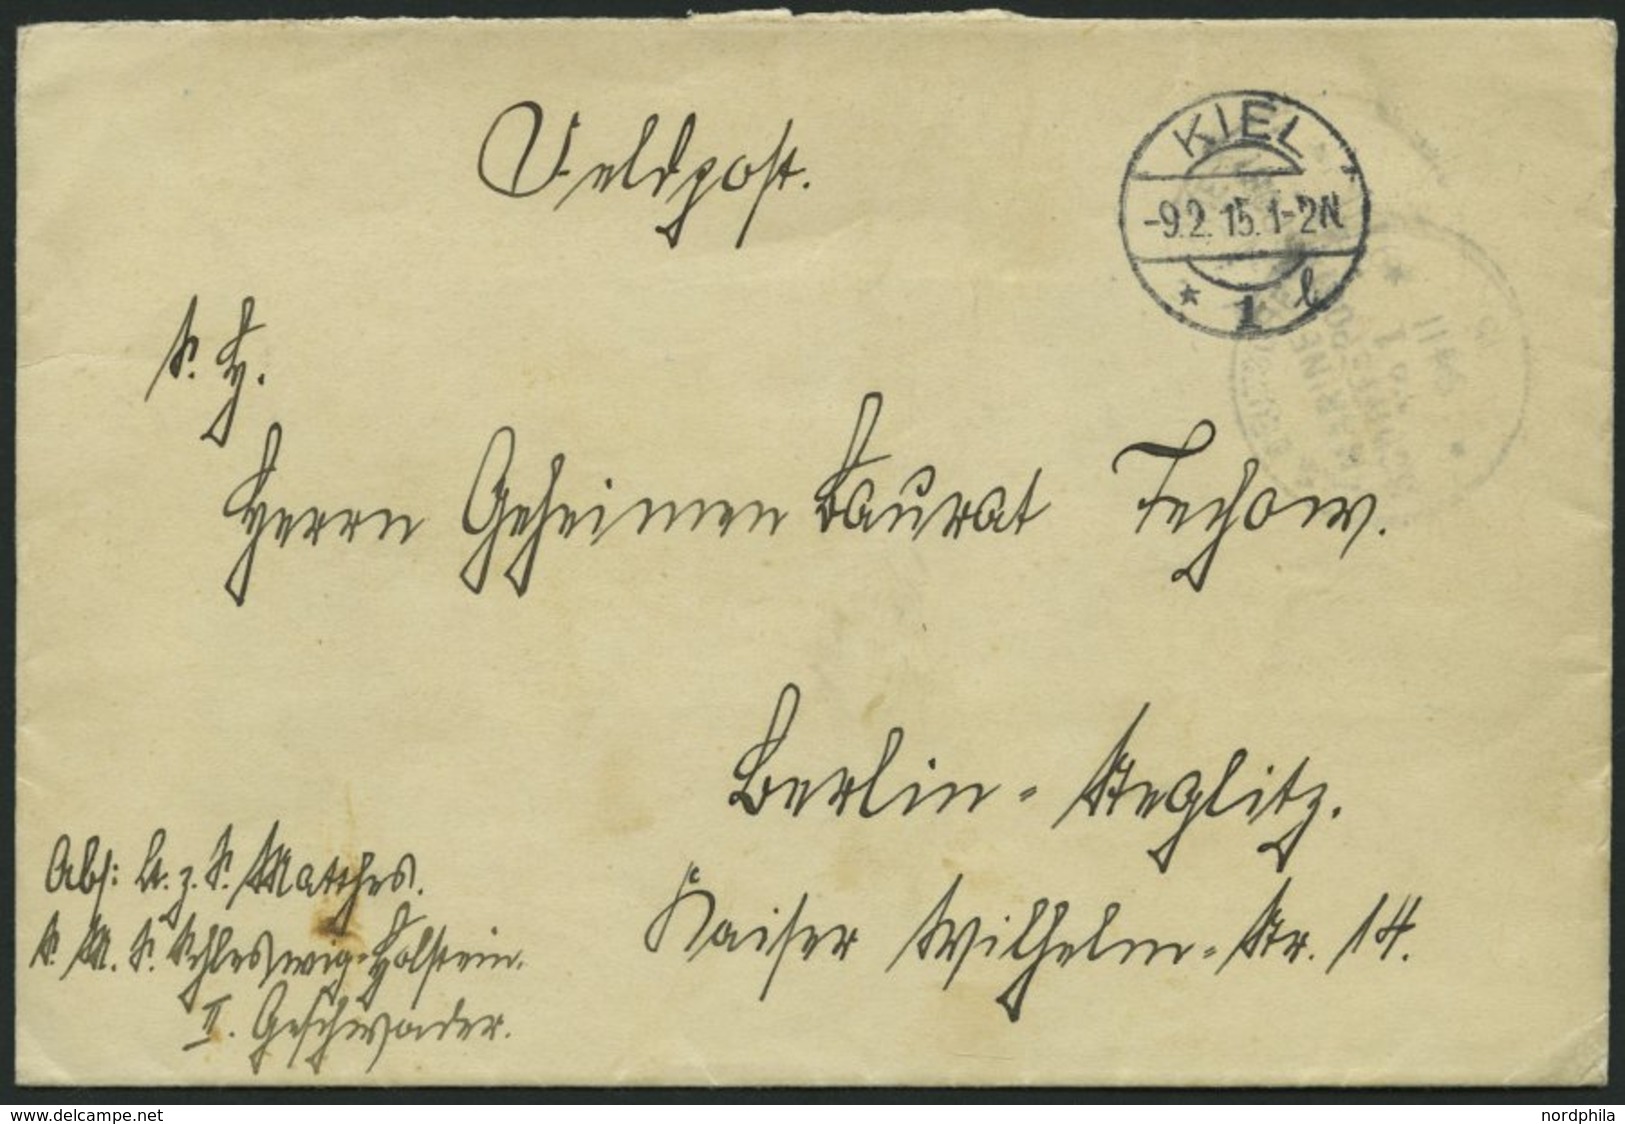 Feldpost.
KIEL
-9.2.15.1-2N
* 1 l
S. H.
Herrn Geheimen Baurat Techow.
Berlin-Steglitz.
Kaiser Wilhelm-Str. 14.
Abs: L. z. S. Matthes.
S. M. S. Schleswig-Holstein.
II. Geschwader.
MARINE
www.delcampe.net
nordphila